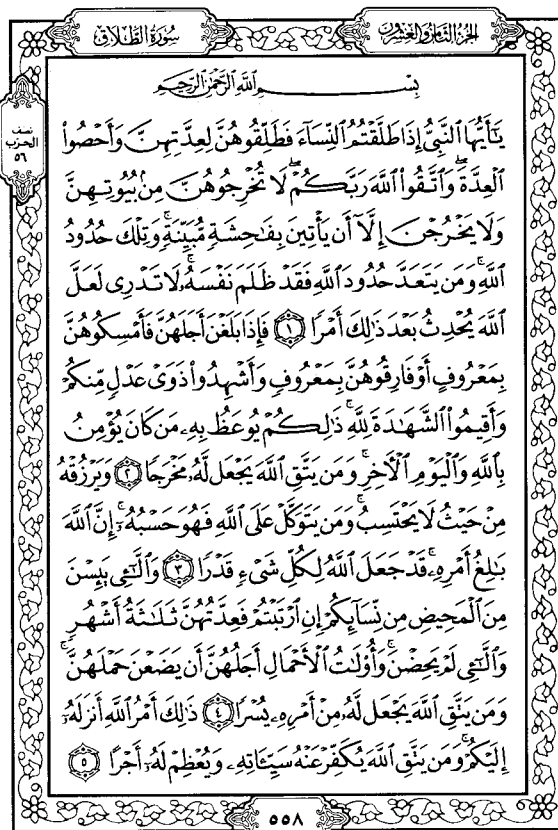 الجزء الثامن والعشرون
سورة الطلاق
نصف
الحزب
٥٦
بِسْمِ اللَّهِ الرَّحْمَٰنِ الرَّحِيمِ
يَٰٓأَيُّهَا ٱلنَّبِىُّ إِذَا طَلَّقْتُمُ ٱلنِّسَآءَ فَطَلِّقُوهُنَّ لِعِدَّتِهِنَّ وَأَحْصُوا۟
ٱلْعِدَّةَ ۖ وَٱتَّقُوا۟ ٱللَّهَ رَبَّكُمْ ۖ لَا تُخْرِجُوهُنَّ مِنۢ بُيُوتِهِنَّ
وَلَا يَخْرُجْنَ إِلَّآ أَن يَأْتِينَ بِفَٰحِشَةٍ مُّبَيِّنَةٍ ۚ وَتِلْكَ حُدُودُ
ٱللَّهِ ۚ وَمَن يَتَعَدَّ حُدُودَ ٱللَّهِ فَقَدْ ظَلَمَ نَفْسَهُۥ ۚ لَا تَدْرِى لَعَلَّ
ٱللَّهَ يُحْدِثُ بَعْدَ ذَٰلِكَ أَمْرًا ١ فَإِذَا بَلَغْنَ أَجَلَهُنَّ فَأَمْسِكُوهُنَّ
بِمَعْرُوفٍ أَوْ فَارِقُوهُنَّ بِمَعْرُوفٍ وَأَشْهِدُوا۟ ذَوَىْ عَدْلٍ مِّنكُمْ
وَأَقِيمُوا۟ ٱلشَّهَٰدَةَ لِلَّهِ ۚ ذَٰلِكُمْ يُوعَظُ بِهِۦ مَن كَانَ يُؤْمِنُ
بِٱللَّهِ وَٱلْيَوْمِ ٱلْـَٔاخِرِ ۚ وَمَن يَتَّقِ ٱللَّهَ يَجْعَل لَّهُۥ مَخْرَجًا ٢ وَيَرْزُقْهُ
مِنْ حَيْثُ لَا يَحْتَسِبُ ۚ وَمَن يَتَوَكَّلْ عَلَى ٱللَّهِ فَهُوَ حَسْبُهُۥٓ ۚ إِنَّ ٱللَّهَ
بَٰلِغُ أَمْرِهِۦ ۚ قَدْ جَعَلَ ٱللَّهُ لِكُلِّ شَىْءٍ قَدْرًا ٣ وَٱلَّٰٓـِٔى يَئِسْنَ
مِنَ ٱلْمَحِيضِ مِن نِّسَآئِكُمْ إِنِ ٱرْتَبْتُمْ فَعِدَّتُهُنَّ ثَلَٰثَةُ أَشْهُرٍ
وَٱلَّٰٓـِٔى لَمْ يَحِضْنَ ۚ وَأُو۟لَٰتُ ٱلْأَحْمَالِ أَجَلُهُنَّ أَن يَضَعْنَ حَمْلَهُنَّ ۚ
وَمَن يَتَّقِ ٱللَّهَ يَجْعَل لَّهُۥ مِنْ أَمْرِهِۦ يُسْرًا ٤ ذَٰلِكَ أَمْرُ ٱللَّهِ أَنزَلَهُۥٓ
إِلَيْكُمْ ۚ وَمَن يَتَّقِ ٱللَّهَ يُكَفِّرْ عَنْهُ سَيِّـَٔاتِهِۦ وَيُعْظِمْ لَهُۥٓ أَجْرًا ٥
٥٥٨